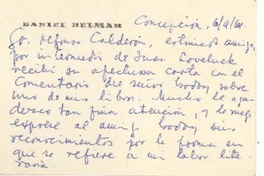 DANIEL BELMAR
Concepción, 6/9/61.
Sr. Alfonso Calderón, estimado amigo,
por intermedio de Juan Loveluck
recibí su afectuosa carta con el
Comentario del señor Goddy sobre
uno de mis libros. Mucho le agra-
dezco tan fina atención, y le ruego
exprese al amigo Goddy mis
reconocimientos por la forma en
que se refiere a mi labor lite-
raria.